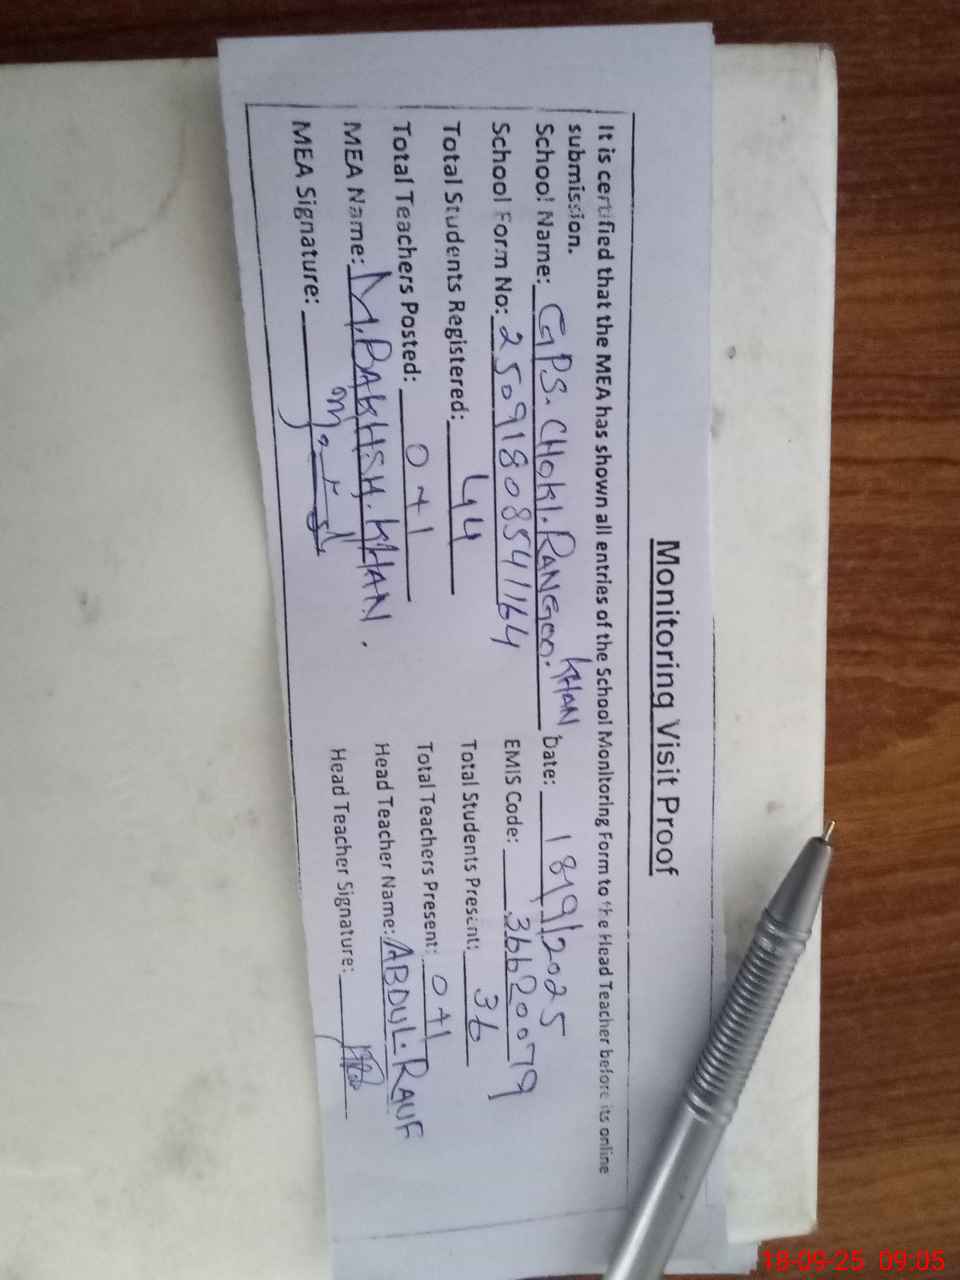 Monitoring Visit Proof
It is certified that the MEA has shown all entries of the School Monitoring Form to the Head Teacher before its online
submission.
School Name: GPS. CHOKI. RANGOO. KHAN Date: 18/9/2025
School Form No: 25091808541164 EMIS Code: 36620079
Total Students Registered: 44 Total Students Present: 36
Total Teachers Posted: 0+1 Total Teachers Present: 0+1
MEA Name: M. BAKHSH. KHAN. Head Teacher Name: ABDUL. RAUF
MEA Signature: Head Teacher Signature:
18-09-25 09:05